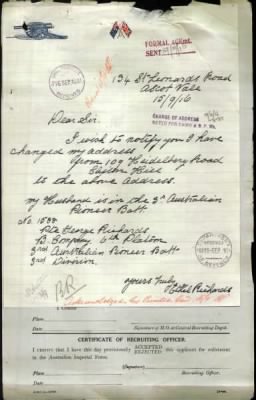 FORMAL ACKMT.
SENT
134 St Leonards Road
Ascot Vale
15/9/16
CHANGE OF ADDRESS
Dear Sir.
I wish to notify you I have
changed my address
from 109 Heidelberg Road
Clifton Hill
to the above Address.
my Husband is in the 3rd Australian
Pioneer Batt
No. 1538
Pte George Richards
B. Company 6th Platoon
3rd Australian Pioneer Batt
3rd Division.
Yours Truly
Ethel Richards
BR
Acknowledged by
Place
Date
Signature of M.O. at Central Recruiting Depot.
CERTIFICATE OF RECRUITING OFFICER.
I certify that I have this day provisionally ACCEPTED
REJECTED this applicant for enlistment
in the Australian Imperial Force.
(Signature)
Place
Recruiting Officer.
Date